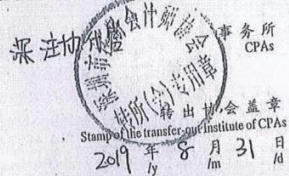 深注协
事务所
CPAs
转所(会)专用章
转出协会盖章
Stamp of the transfer-out Institute of CPAs
2019 年 8 月 31 日
/y /m /d